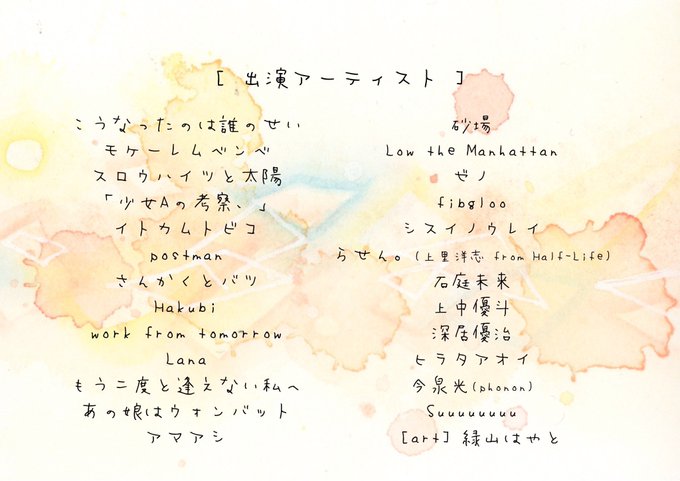 [ 出演アーティスト ]
こうなったのは誰のせい
モケーレムベンベ
スロウハイツと太陽
「少女Aの考察、」
イトカムトビコ
postman
さんかくとバツ
Hakubi
work from tomorrow
Lana
もう二度と逢えない私へ
あの娘はウォンバット
アマアシ
砂場
Low the Manhattan
ゼノ
fibgloo
シスイノウレイ
らせん。(上里洋志 from Half-Life)
石庭未来
上中優斗
深居優治
ヒラタアオイ
今泉光(phonon)
Suuuuuuuu
[art] 緑山はやと